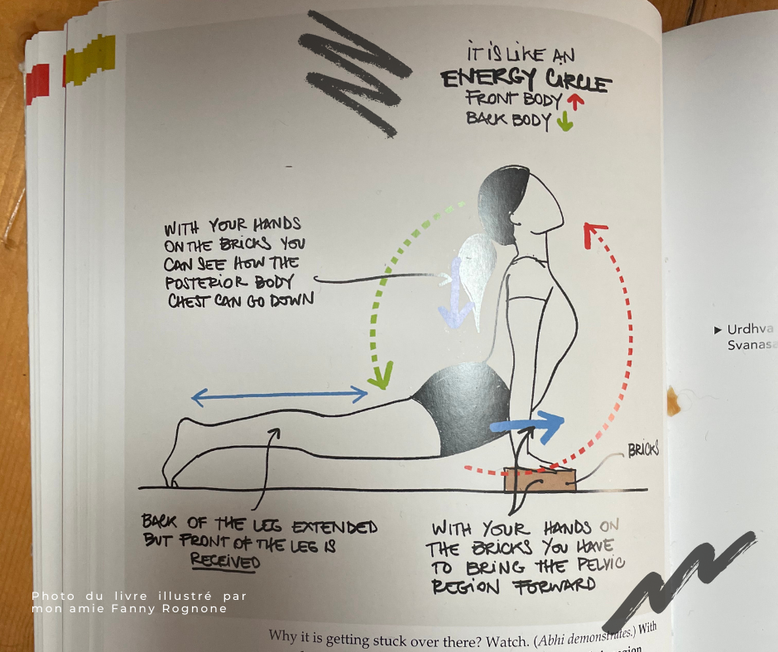 IT IS LIKE AN
ENERGY CIRCLE
FRONT BODY
BACK BODY
WITH YOUR HANDS
ON THE BRICKS YOU
CAN SEE HOW THE
POSTERIOR BODY
CHEST CAN GO DOWN
Urdhva
Svanasa
BRICKS
BACK OF THE LEG EXTENDED
BUT FRONT OF THE LEG IS
RECEIVED
WITH YOUR HANDS ON
THE BRICKS YOU HAVE
TO BRING THE PELVIC
REGION FORWARD
Photo du livre illustré par
mon amie Fanny Rognone
Why it is getting stuck over there? Watch. (Abhi demonstrates.) With